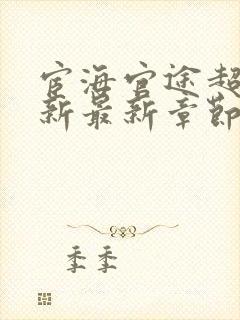 宦海官途超
新最新章节
季季